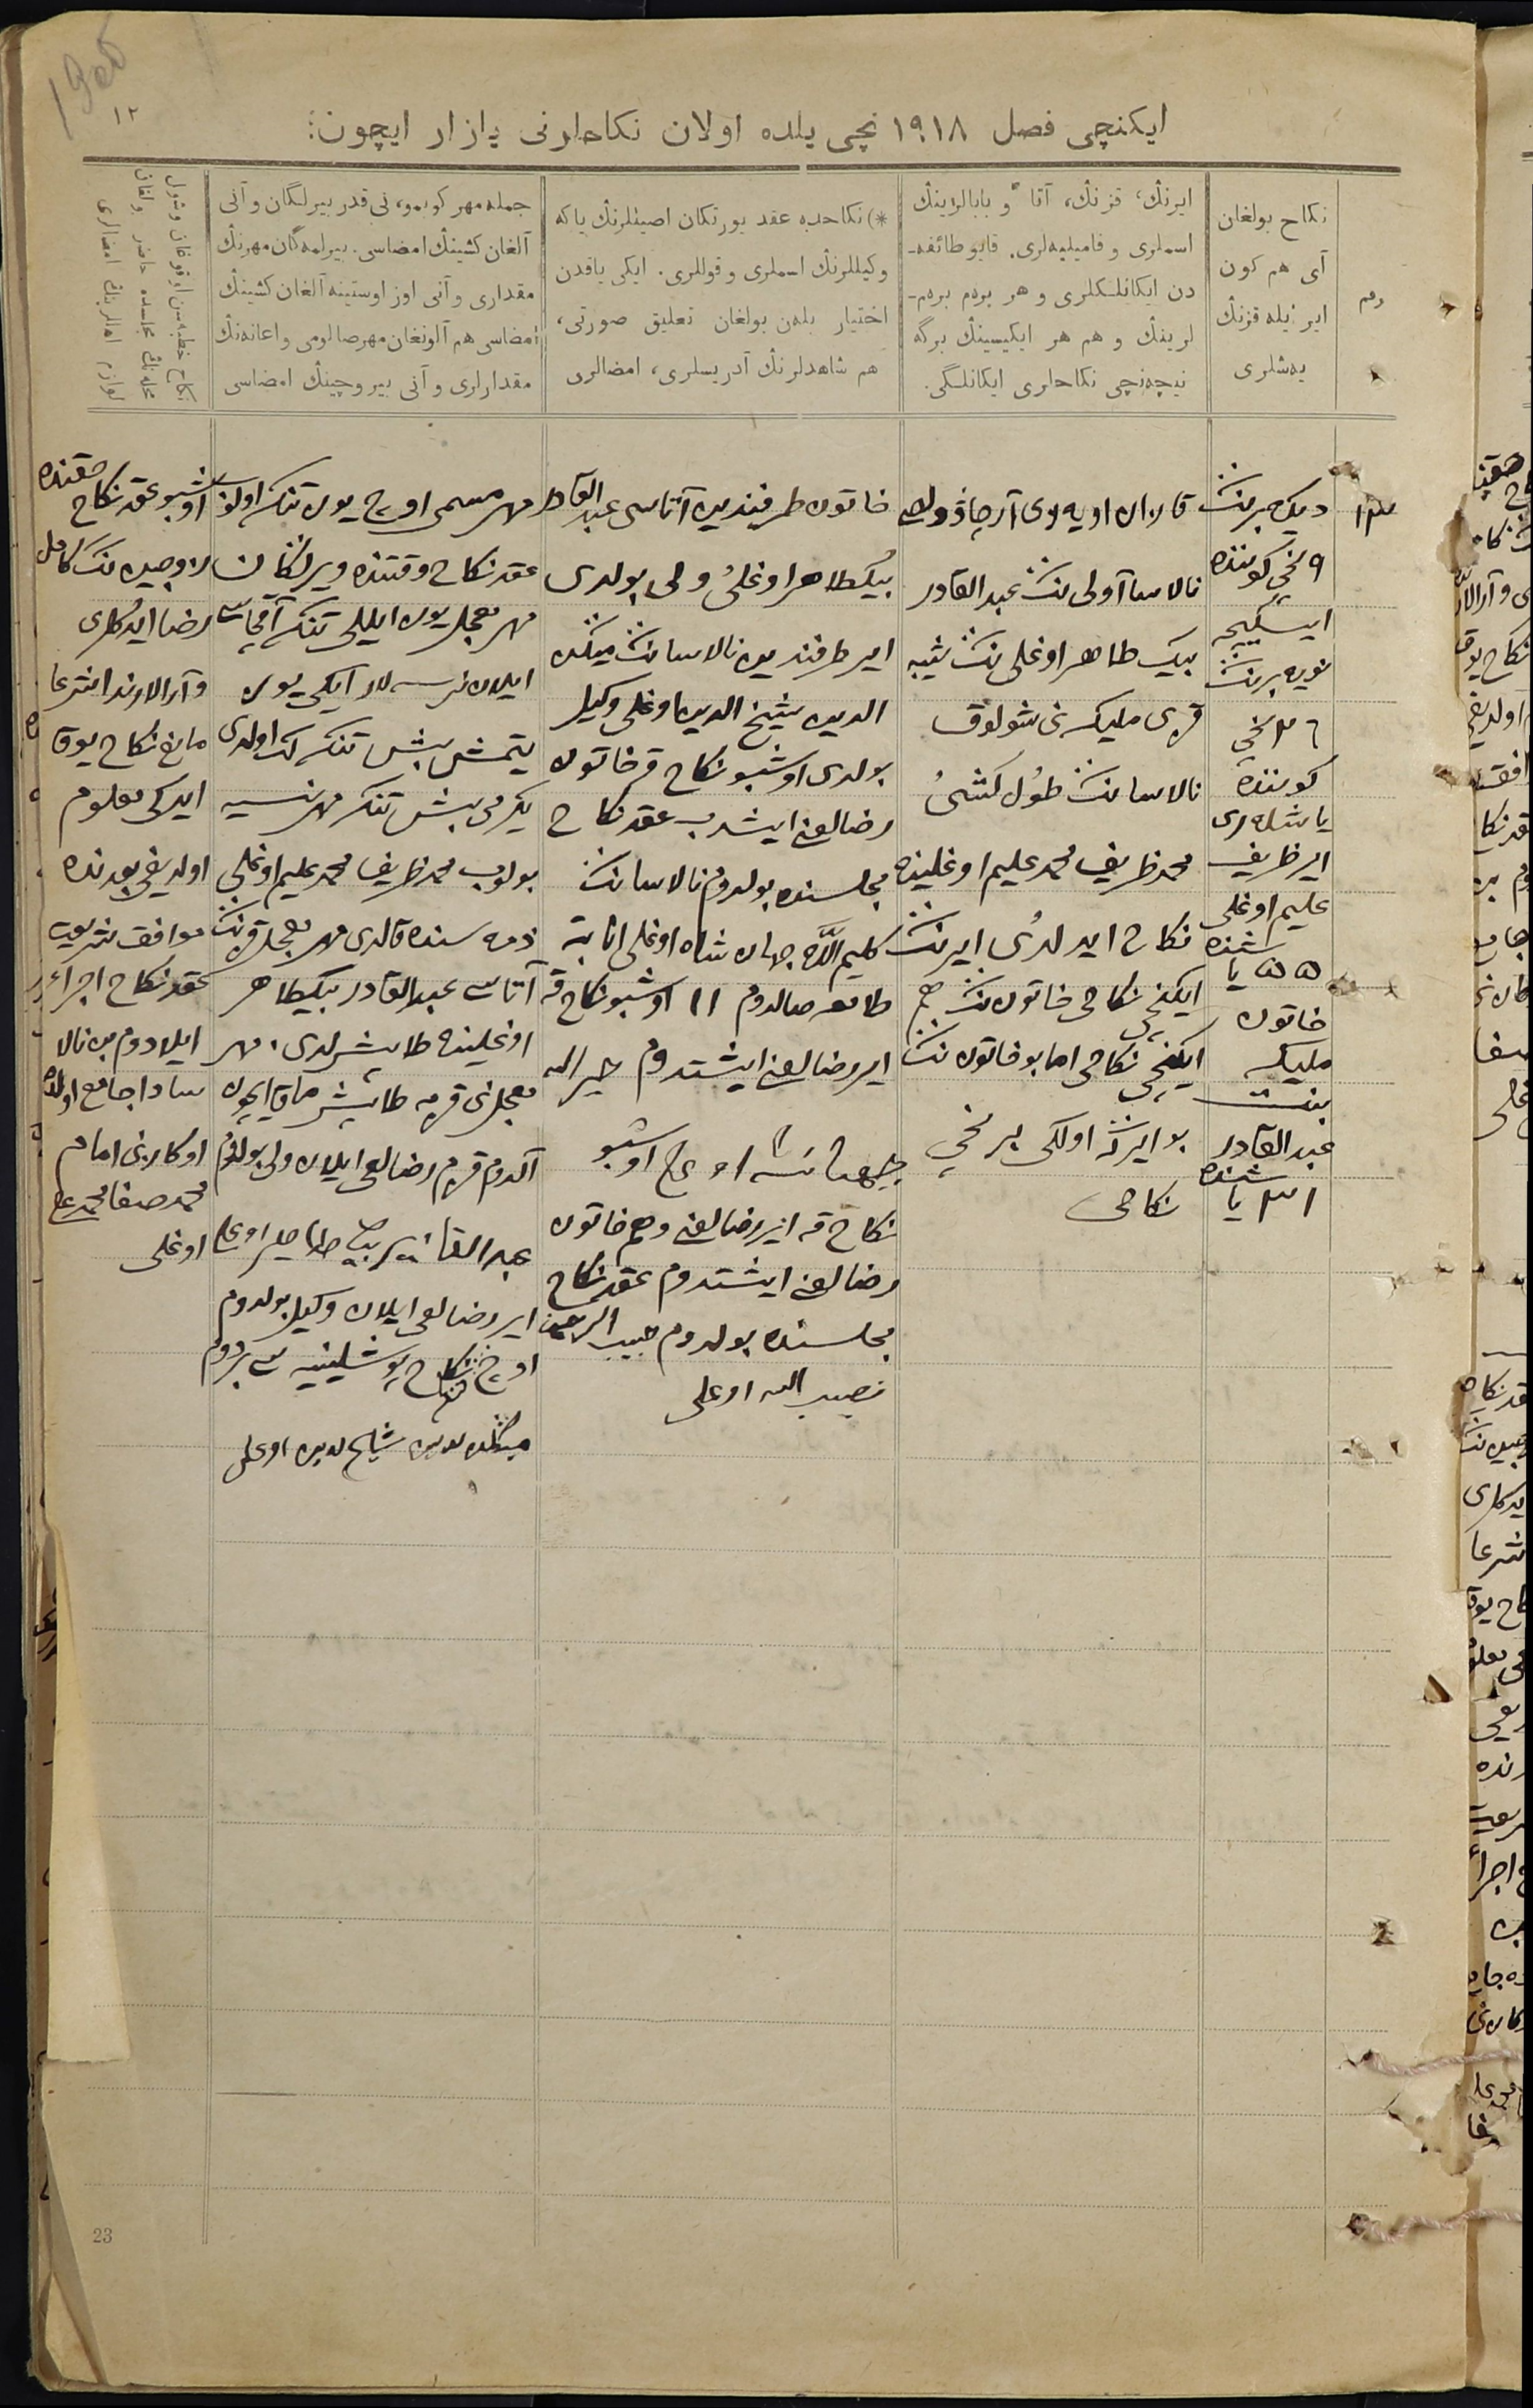 1908
١٢
ایکنچی فصل ١٩١٨ نچی یلده اولان نکاحلرنی یازار ایچون:
رقم
نکاح بولغان
آی هم کون
ایر ایله قزنڭ
یەشلری
ایرنڭ، قزنڭ، آتا و بابالرینڭ
اسملری و فامیلیەلری. قایو طائفه‌ـ
دن ایکانلکلری و هر بردم بردم‌ـ
لرینڭ و هم هر ایکیسینڭ برگه
نیچەنچی نکاحلری ایکانلگی.
*) نکاحده عقد یورتکان اصیللرنڭ یا‌که
وکیللرنڭ اسملری و قوللری. ایکی یاقدن
اختیار بلەن بولغان تعلیق صورتی،
هم شاهدلرنڭ آدریسلری، امضالری
جمله مهر کوبمو، نی قدر بیرلگان و آنی
آلغان کشینڭ امضاسی. بیرلمەگان مهرنڭ
مقداری و آنی اوز اوستینه آلغان کشینڭ
امضاسی هم آلونغان مهرصالومی و اعانەنڭ
مقدارلری و آنی بیروچینڭ امضاسی
نکاح خطبەسن اوقوغان وشول
محلەنڭ مجلسده حاضر ولغان
لوازم اهالرینڭ امضالری
١٣
دیکابرنڭ
٩ نچی کوننده
ایسکیچه
نویابرنڭ
٢٦ نچی
کوننده
یاشلەری
ایر ظریف
علیم اوغلی
٥٥ یاشنده
خاتون
ملیکه
بنت
عبدالقادر
٣١ یاشنده
قازان اویەزی آرچا وولصی
نالاسا آولی ننڭ عبدالقادر
بیک طاهر اوغلی ننڭ ثیبه
قزی ملیکه نی شولوق
نالاسا ننڭ طول کشی
محمدظریف محمدعلیم اوغلینه
نکاح ایدلدی ایرننڭ
ایکنچی نکاحی خاتون ننڭ هم
ایکنچی نکاحی اما بو خاتون ننڭ
بو ایرگه اولکی برنچی
نکاحی
خاتون طرفیندین آتاسی عبدالقادر
بیکطاهر اوغلی ولی بولدی
ایر طرفیندین نالاسا ننڭ
الدین شیخ الدین اوغلی وکیل
بولدی اوشبو نکاح قه خاتون
رضالغن ایشدب عقد نکاح
مجلسنده بولدوم نالاسا ننڭ
کلیم الله جهان شاه اوغلی
طامغا صالدوم ١١ اوشبو نکاح قه
ایر رضالغن ایشتدوم خیرالله
جهانشاه اوغلی اوشبو
نکاح قه ایر رضالغن وهم خاتون
رضالغن ایشتدوم عقد نکاح
مجلسنده بولدوم حبیب الرحمن
نصیب الله اوغلی
مهر مسمی اوچ یوز تنکه اولوب
عقد نکاح وقتنده ویرلگان
مهر معجل یوز ایللی تنکه آقچاسی
ایلان نرسەلار ایکی یوز
یتمش بیش تنکه لک اولدی
یکرمی بیش تنکه مهر نسیه
بولوب محمدظریف محمدعلیم اوغلی
ذمەسنده قالدی مهر معجل قزننڭ
آتاسی عبدالقادر بیکطاهر
اوغلینه طابشرلدی، مهر
معجلنی قزیمه طابشرماق ایچون
آلدوم قزم رضالغی ایلان ولی بولدوم
عبدالقادیر بیک طاهر اوغلی
ایر رضالغی ایلان وکیل بولدوم
شیخ لدین اوغلی
اوشبو عقد نکاح حقنده
زوجین ننڭ کامل
رضا ایدکلری
و آرالارندا شرعا
مانع نکاح یوق
ایدکی معلوم
اولدیغی بعدنده
موافق شریعت
عقد نکاح اجراء
ایلادوم من نالا
سادا جامع اولده
اوکازنی امام
محمدصفا محمدعلی
اوغلی
23